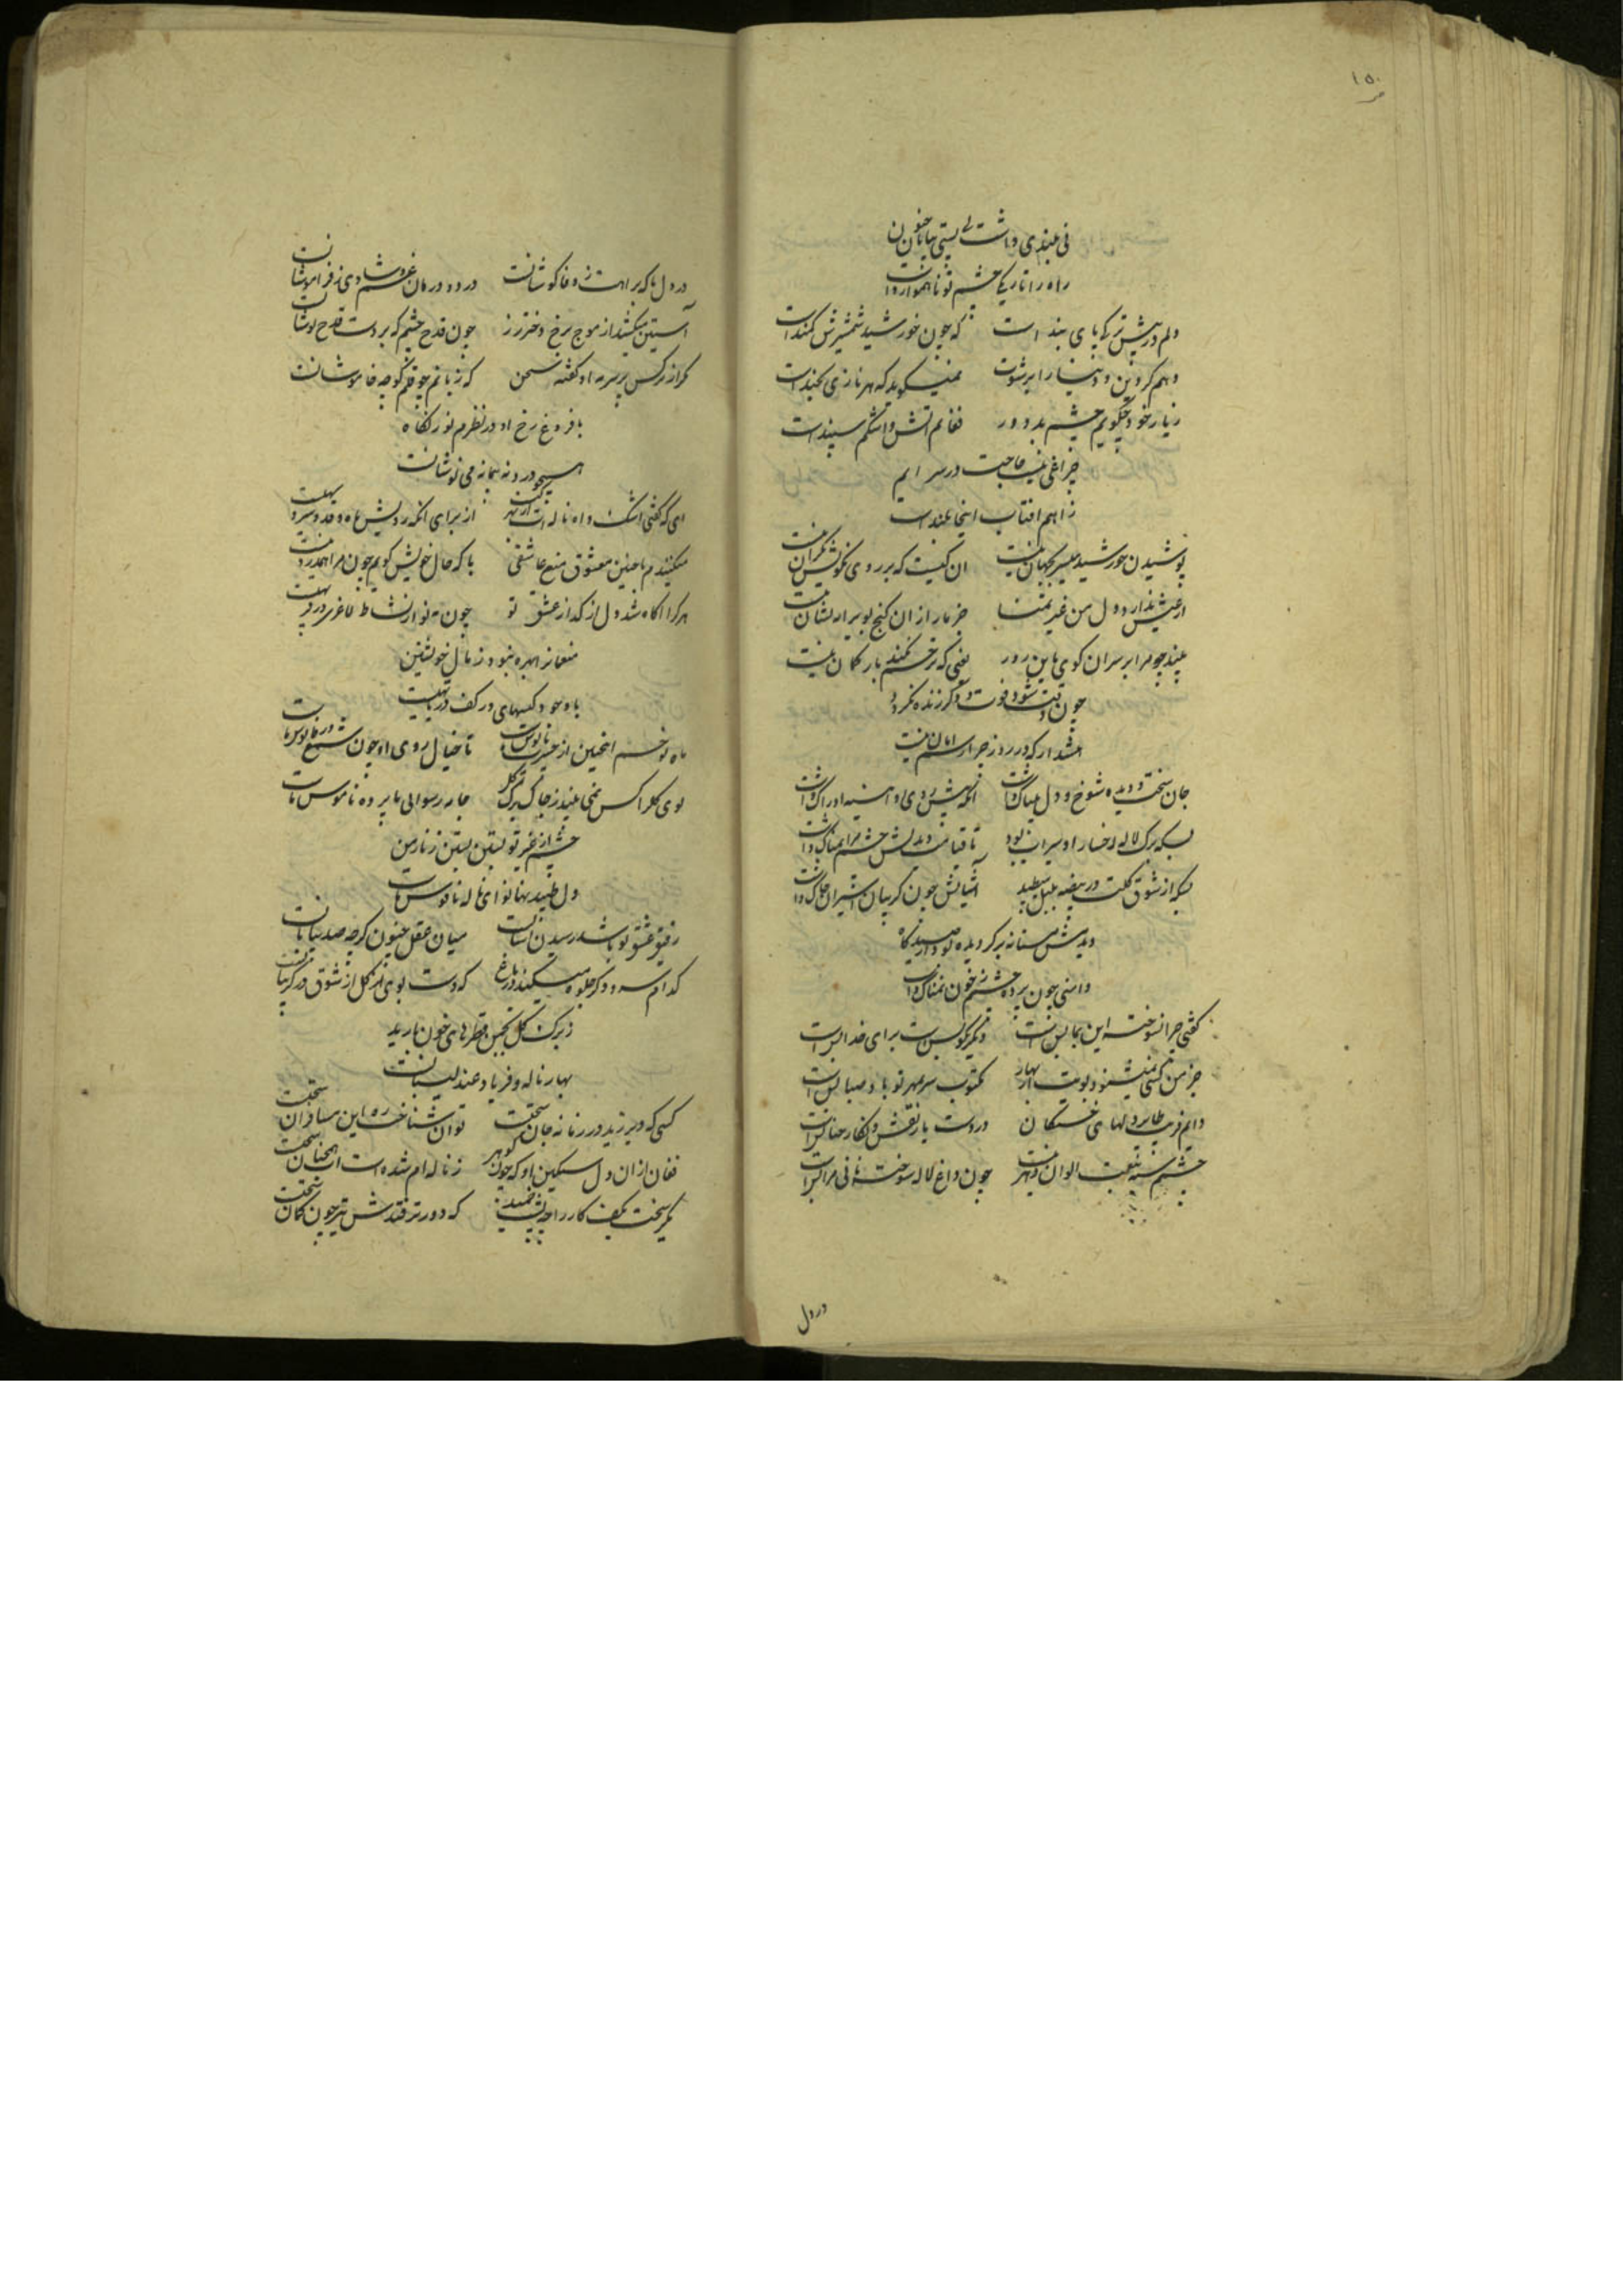 ۱۵۰
نی بلندی داشت نی پستی بیابان جنون
راه را تاریکی چشم تو ناهموار داشت
دلم در پیش ترکی پای بند است که چون خورشید شمشیرش کمند است
دهم کر دین و دنیا را برشوت نمیکوید که بهر نازی بچند است
زیار خود چکویم چشم بد دور فغانم اتش و اشکم سپند است
چراغی نیست حاجت در سرایم
ز اهم افتاب اینجا بلند است
پوشیدن خورشید میسر بجهان نیست ان کیست که بر روی نکویش نکران نیست
از عیش ندارد دل من غیر تمنا جز مار از ان کنج بویرانه نشان نیست
بیند چو مرا بر سر ان کوی باین روز
چون وقت شود فوت دکر زنده نکردد
هشدار که در روز جزا رسم امان نیست
جان سخت و دیده شوخ و دل بیباک داشت انکه پیش روی او اینه ادراک داشت
بسکه برک لاله رخسار او سیراب بود تا قیامت دیدنش چشم مرا نمناک داشت
بسکه از شوق کلت در بیضه بلبل میطپید اشیانش چون کریبان شیران چاک داشت
دیدمش مستانه بر کردیده بود از صیدکاه
دامنی چون پرده چشمم ز خون نمناک داشت
کفتی چرا نسوخته این بجا بس است دیکر مکو بس است برای خدا بس است
جز من کسی نمیشنود بویت از بهار مکتوب سر بمهر تو باد صبا بس است
دام فریب طایر دلهای خستکان در دست یار نقش و نکار حنا بس است
چشمم بسیر نعمت الوان دهر نیست چون داغ لاله سوخته نانی مرا بس است
در دل
در دل ما که پر اهنک ز وفا کوشانست درد و درمان غم و شادی ز فراموشانست
آستین میکشد از موج برخ دختر رز چون قدح چشم که بر دست قدح نوشانست
مکر از نرکس پر سرمه او کفته سخن که زبانم چو قلم کوچه خاموشانست
با فروغ رخ او در نظرم نور نکاه
همچو درد ته پیمانه می نوشانست
ای که کفتی اشک و اه و ناله ات از بهر کیست از برای انکه رویش ماه و قد سرو سهیست
میکنندم با چنین معشوق منع عاشقی با که حال خویش کویم چون مرا همدرد نیست
هر کرا اکاه شد دل از کداز عشق تو چون مه نو از نشاط لاغری در فربهیست
منعمانرا بهره نبود ز مال خویشتن
با وجود کیسهای در کف دریا تهیست
ماه نو خم اینچنین از حسرت پابوس ماست تا خیال روی او چون شمع در فانوس ماست
بوی کل را کس نمی بیند ز چاک برک کل جامه رسوایی ما پرده ناموس ماست
چشم از غیر تو بستن بستن زنار من
دل طپیدنها نوای ناله ناقوس ماست
رفیق عشق تو باشد رسیدن آسانست میان عقل و جنون کرچه صد بیابانست
کدام سرو دکر جلوه میکند در باغ که دست بوی هر کل از شوق در کریبانست
ز برک کل بچمن قطرهای خون بارید
بهار ناله و فریاد عندلیبانست
کسی که دیر زید در زمانه جان سختست توان شناخت ره این مسافران سختست
فغان از ان دل سنکین او که چون کوهر ز ناله ام شده است انچنان سختست
مکیر سخت بکف کار را چو پشت خمید که دورتر فتدش تیر چون کمان سختست